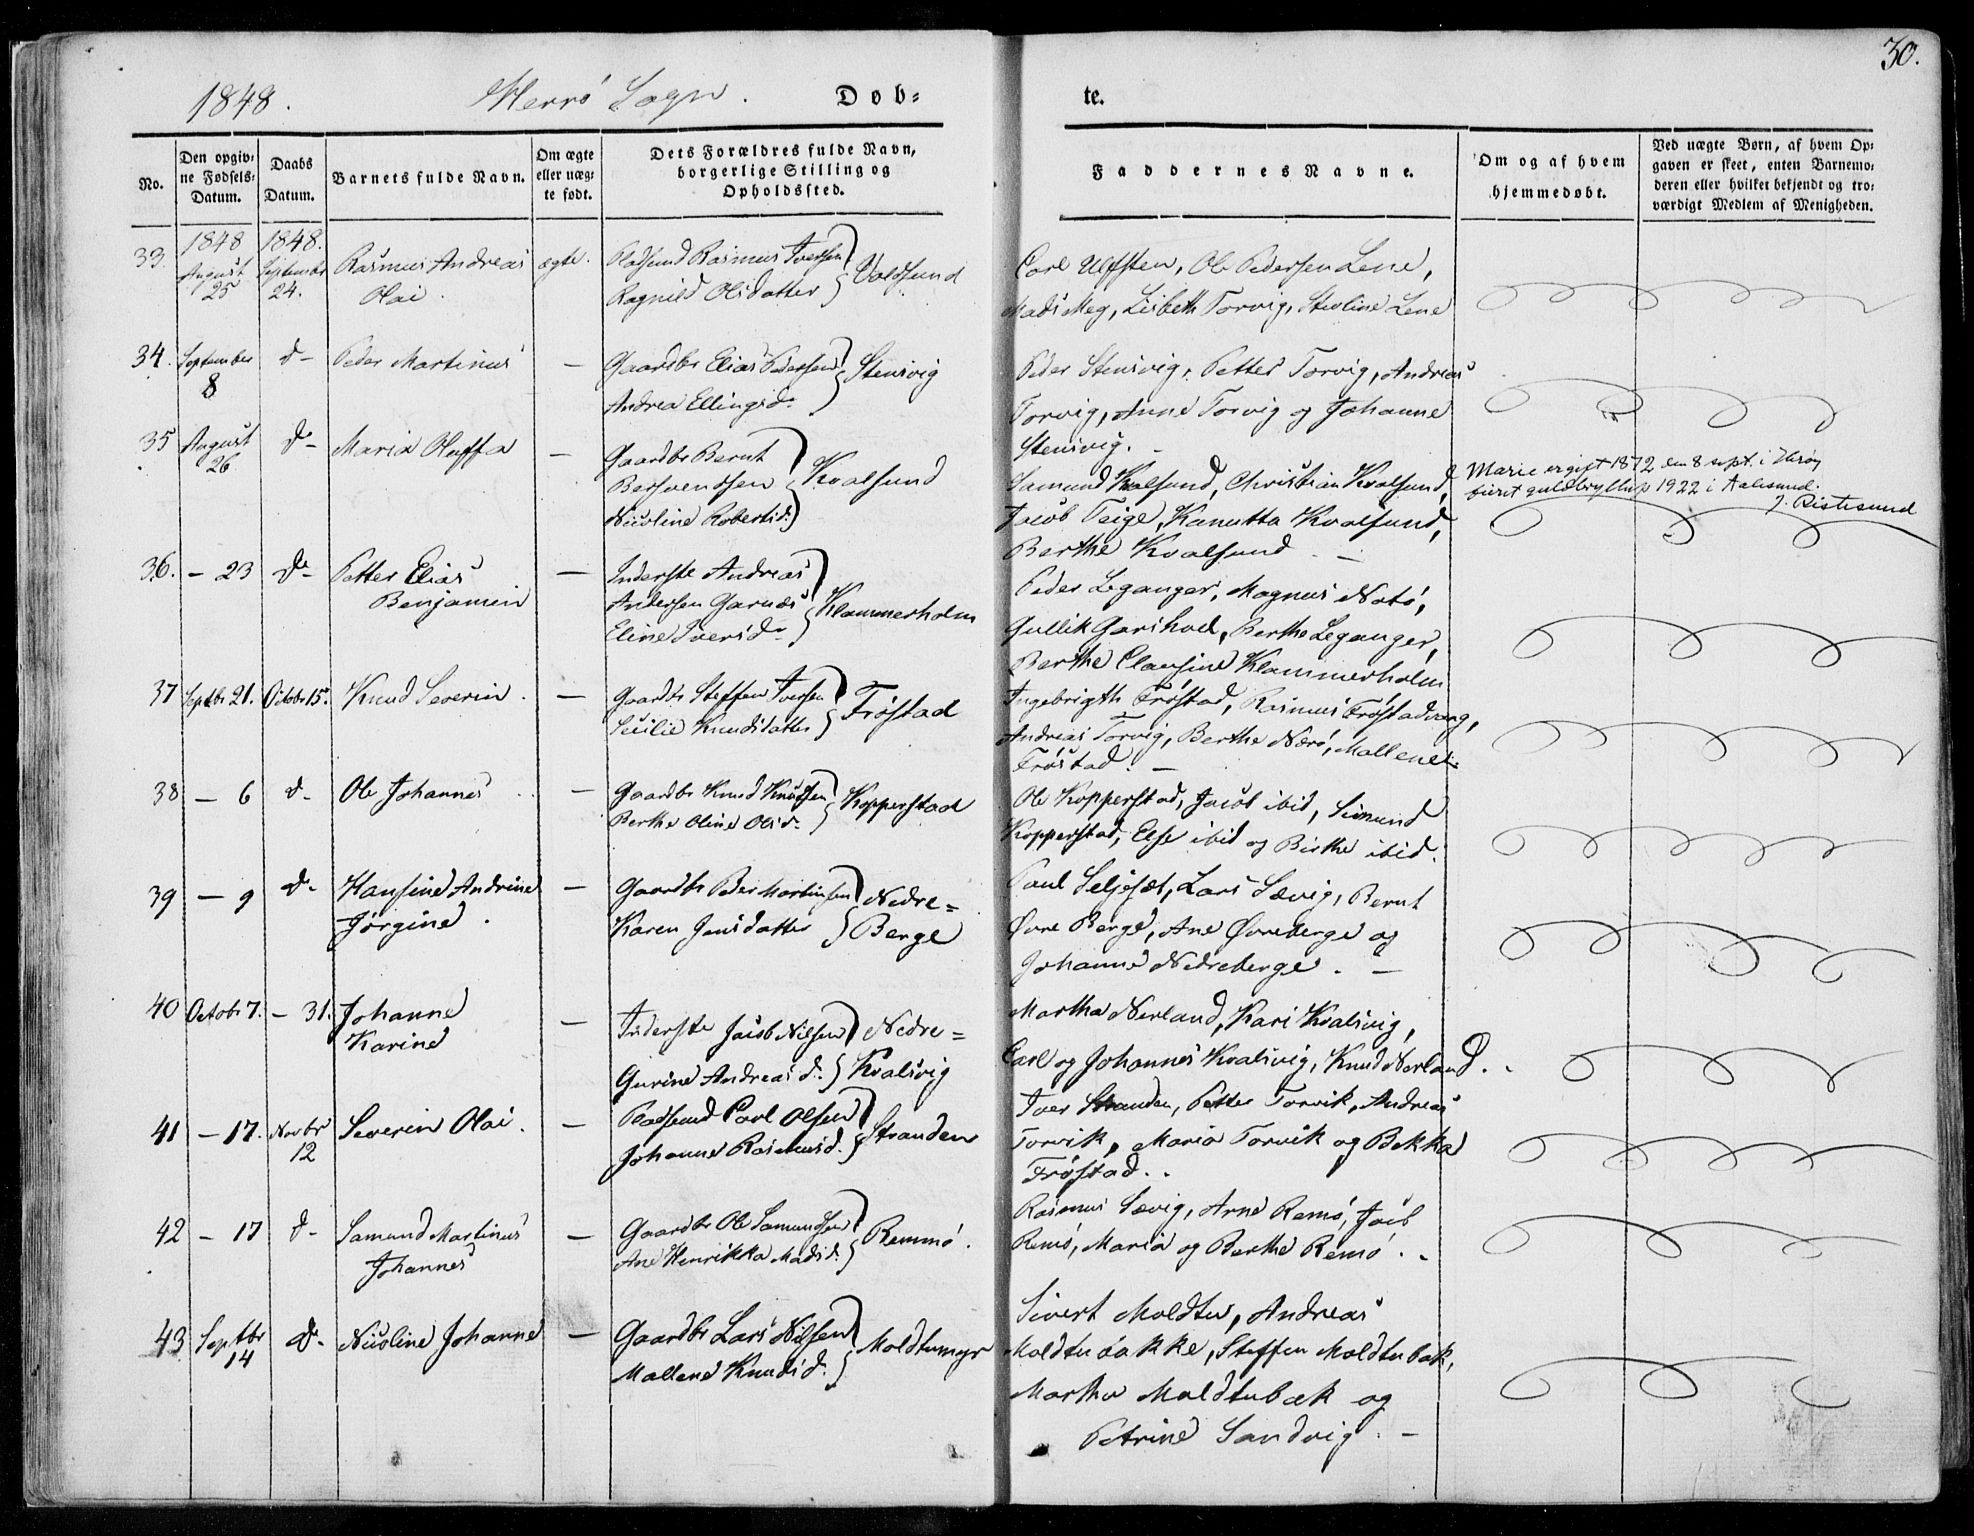 30.
1848. Herrö Sogn. Døb-te.
No.
Den opgiv-
ne Fødsels-
Datum.
Daabs
Datum.
Barnets fulde Navn.
Om ægte
eller uæg-
te født.
Dets Forældres fulde Navn,
borgerlige Stilling og
Opholdssted.
Faddernes Navne.
Om og af hvem
hjemmedøbt.
Ved uægte Børn, af hvem Op-
gaven er skeet, enten Barnemo-
deren eller hvilket bekjendt og tro-
værdigt Medlem af Menigheden.
33. 1848 August 25 1848. September 24. Rasmus Andreas Olai. ægte.
Pladsmd Rasmus Iversen
Ragnild Olsdatter
Voldsund
Carl Ulfsten, Ole Pedersen Lene,
Mads Meg, Lisbeth Torvig, Stesline Lene
34. September 8 d- Peder Martinus —
Gaardbr Elias Pedersen
Andrea Ellingsd.
Stensvig
Peder Stensvig, Petter Torvig, Andreas
Torvig, Anne Torvig og Johanne
Stensvig. -
35 August 26 d- Maria Oluffa —
Gaardbr Bernt
Bersvendsen
Nicoline Robertsd.
Kvalsund
Samund Kvalsund, Christian Kvalsund,
Jacob Teige, Kanutta Kvalsund,
Berthe Kvalsund. -
Marie er gift 1872 den 8 sept. i Herøy
feiret guldbryllup 1922 i Aalesund.
J. Ristesund
36. - 23 d- Petter Elias Benjamin —
Inderste Andreas
Andersen Garnæs
Eline Iversd.
Klammerholm
Peder Leganger, Magnus Notø,
Gullik Garshol, Berthe Leganger,
Berthe Clausine Klammerholm
37 Septbr 21. Octobr 15. Knud Severin. —
Gaardbr Steffen Iversen
Secilie Knudsdatter
Frøstad
Ingebrigth Frøstad, Rasmus Frøstadvaag,
Andreas Torvig, Berthe Nærø, Mallene
Frøstad. -
38 - 6 d- Ole Johannes —
Gaardbr Knud Knudsen
Berthe Oline Olsd.
Kopperstad
Ole Kopperstad, Jacob ibid, Simund
Kopperstad, Else ibid og Birthe ibid.
39 - 9 d- Hansine Andrine Jørgine. —
Gaardbr Peder Martinsen
Karen Jensdatter
Nedre-
Berge
Paul Seljeset, Lars Sævig, Bernt
Øvre Berge, Ane Øvreberge og
Johanne Nedreberge. -
40 Octobr 7. - 31. Johanne Karine —
Inderste Jacob Nilsen
Gurine Andreas d.
Nedre-
Kvalsvig
Martha Nerland, Kari Kvalsvig,
Carl og Johannes Kvalsvig, Knud Nerland.
41 - 17. Novbr 12 Severin Olai. —
Pladsmd Carl Olsen
Johanne Rasmusd.
Stranden
Iver Stranden, Petter Torvik, Andreas
Torvik, Maria Torvik og Bekka
Frøstad.
42 - 17 d- Samund Martinus Johannes —
Gaardbr Ole Samundsen
Ane Henrikka Madsd.
Remmø.
Rasmus Sævig, Arne Remø, Jacob
Remø, Maria og Berthe Remø.
43 Septbr 14 d- Nicoline Johanne —
Gaardbr Lars Nilsen
Mallene Knudsd.
Moldtumyr
Sivert Moldtu, Andreas
Moldtubakke, Steffen Moldtubak,
Martha Moldtubæk og
Petrine Sandvig. -